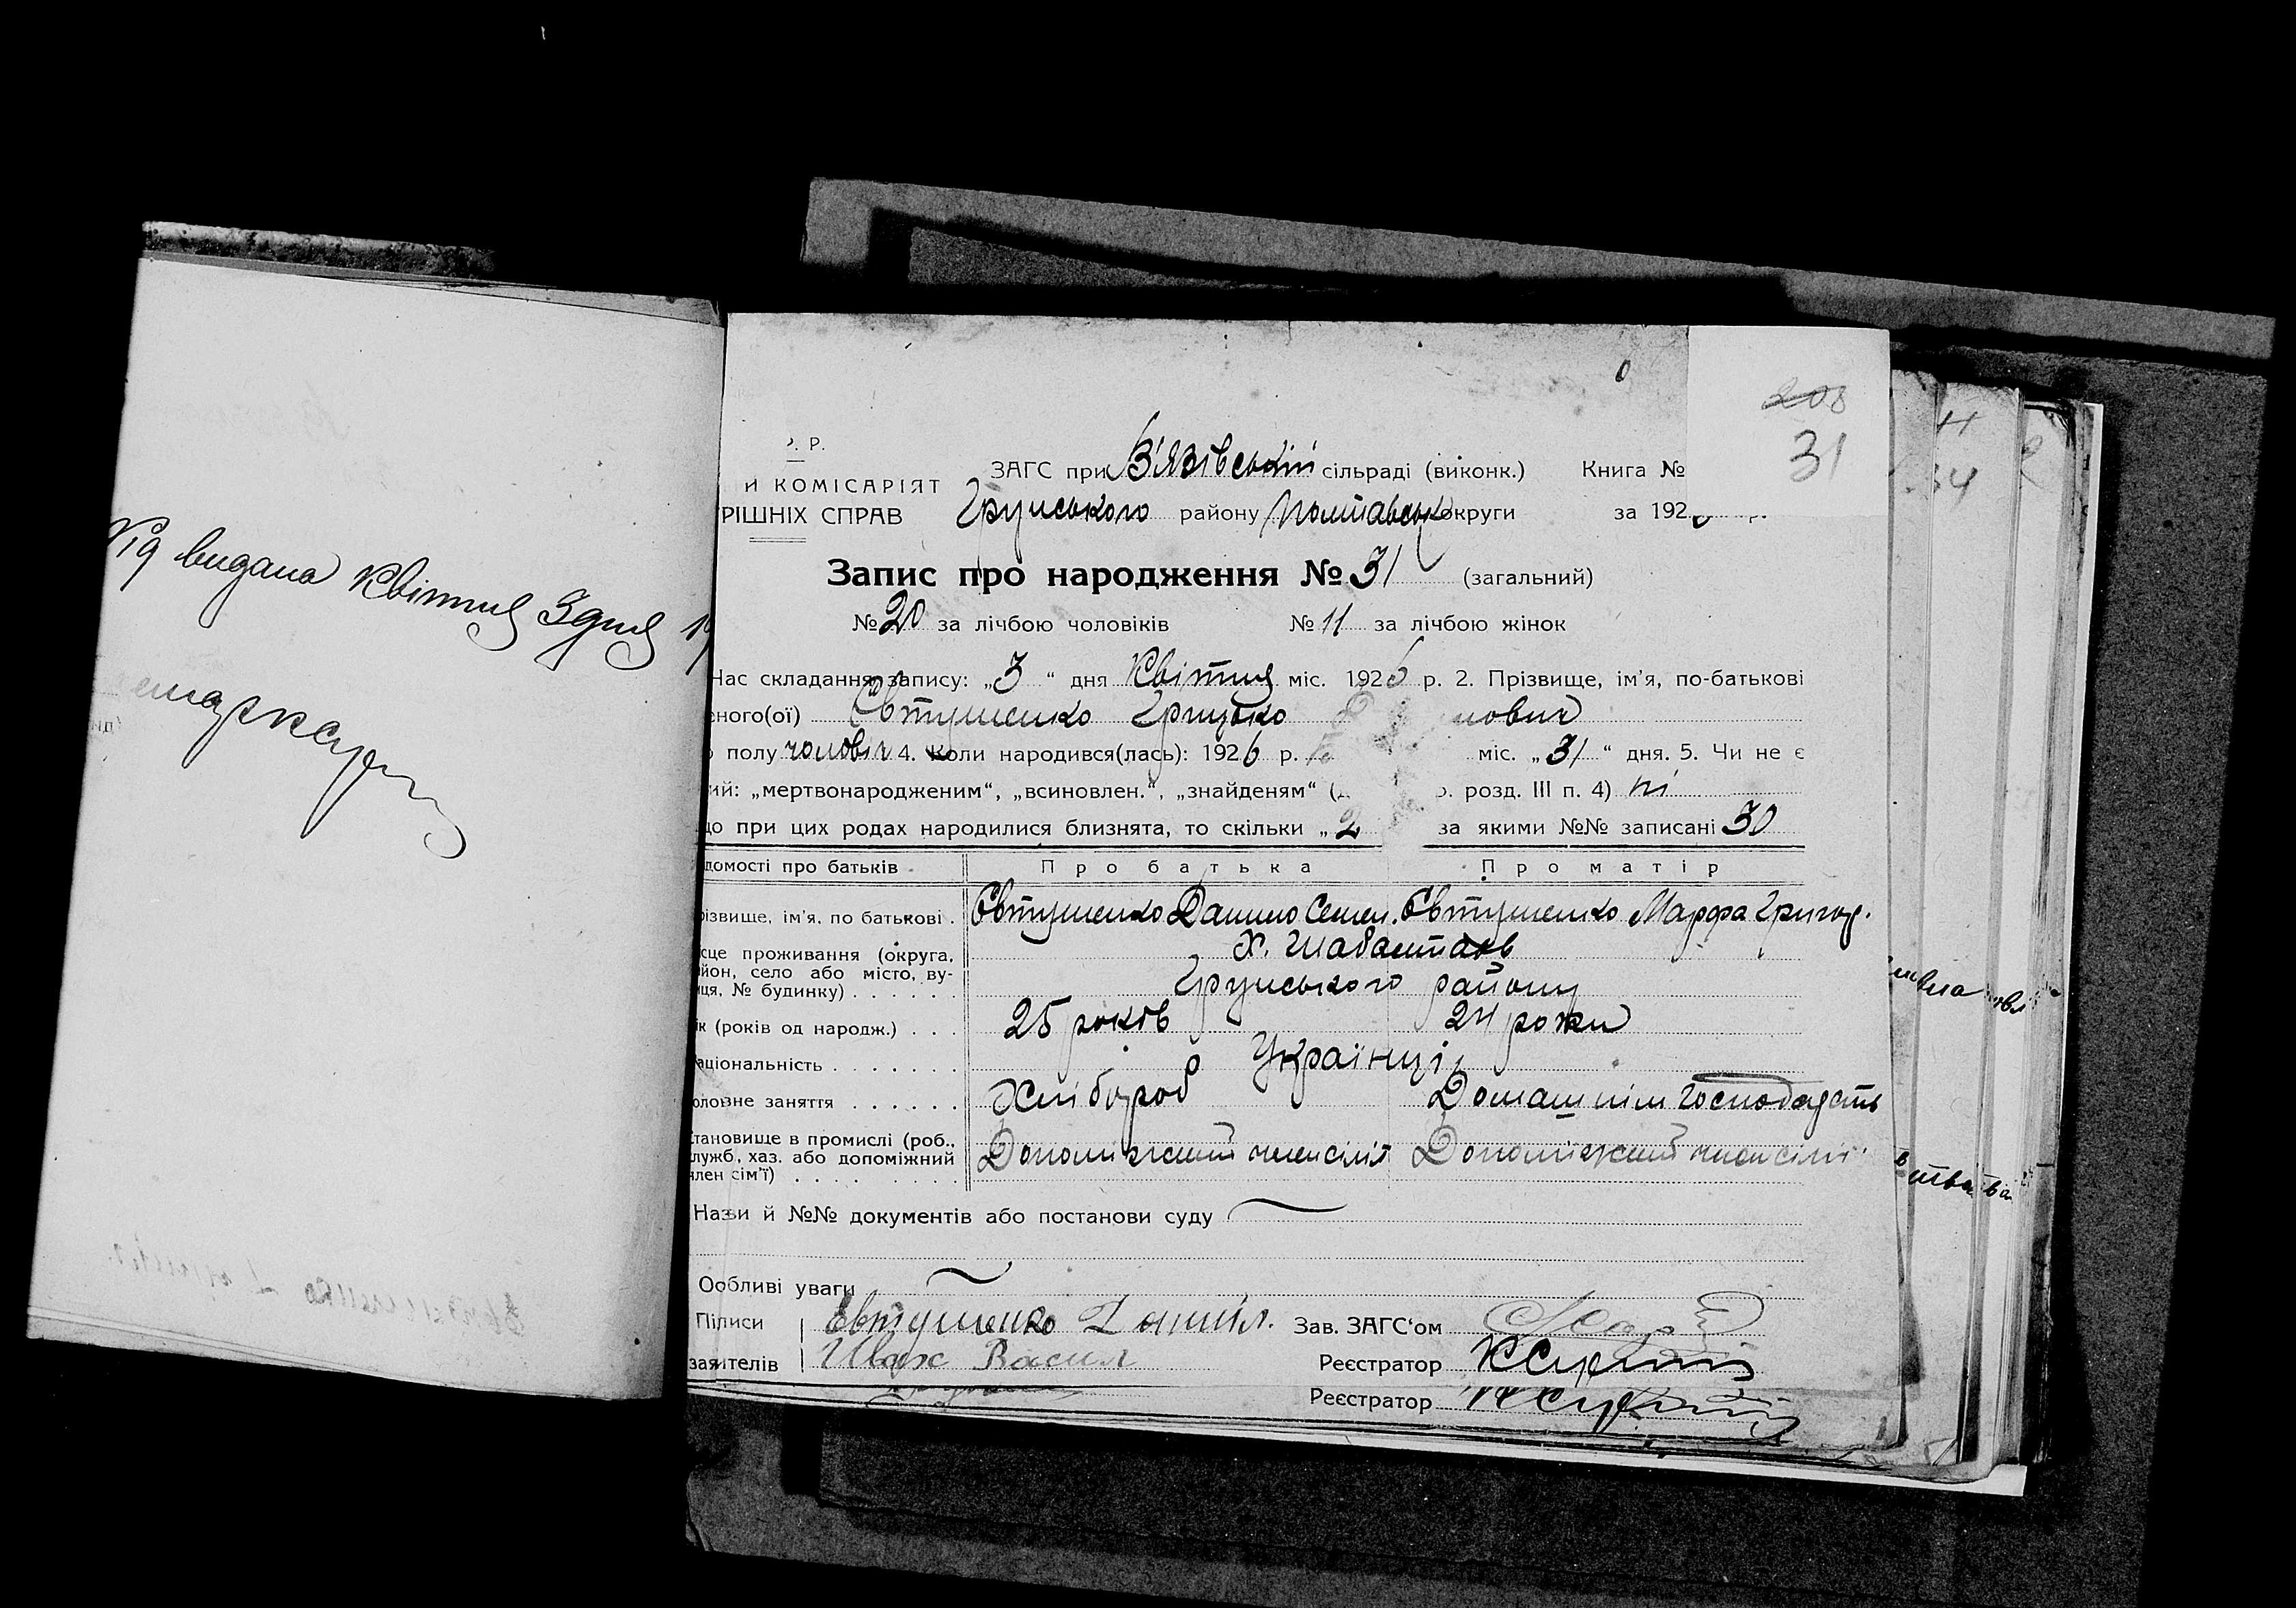 видана Квітня 3 дня 19
208
31
Р. Р.
ЗАГС при В'язівській сільраді (виконк.) Книга №
й КОМІСАРІЯТ
РІШНІХ СПРАВ Грунського району Полтавськ округи за 192
Запис про народження № 31 (загальний)
№ 20 за лічбою чоловіків № 11 за лічбою жінок
Час складання запису: „3“ дня Квітня міс. 1926 р. 2. Прізвище, ім'я, по-батькові
ного(ої) Євтушенко Грицько нович
полу чоловіч 4. Коли народився(лась): 1926 р. міс. „31“ дня. 5. Чи не є
ий: „мертвонародженим“, „всиновлен.“, „знайденям“ ( розд. III п. 4) ні
що при цих родах народилися близнята, то скільки „2 за якими №№ записані 30
домості про батьків Про батька Про матір
різвище, ім'я, по батькові Євтушенко Данило Семен. Євтушенко Марфа Григор.
сце проживання (округа, Х. Шабаштаїв
йон, село або місто, ву-
ця, № будинку) Грунського району
ік (років од народж.) 25 років 24 роки
аціональність Українці
оловне заняття Хлібороб Домашнім господарств
тановище в промислі (роб.,
служб, хаз. або допоміжний Допоміжний член сімї Допоміжний член сімї
член сім'ї)
Назви й №№ документів або постанови суду
Особливі уваги
Підписи Євтушенко Даниіл. Зав. ЗАГС'ом
заятелів Ивах Васил Реєстратор
Реєстратор